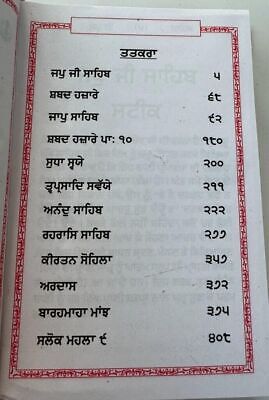 ਤਤਕਰਾ
ਜਪੁ ਜੀ ਸਾਹਿਬ ੫
ਸ਼ਬਦ ਹਜ਼ਾਰੇ ੬੮
ਜਾਪੁ ਸਾਹਿਬ ੯੨
ਸ਼ਬਦ ਹਜ਼ਾਰੇ ਪਾ: ੧੦ ੧੮੦
ਸੁਧਾ ਸ੍ਵਯੇ ੨੦੦
ਤ੍ਵਪ੍ਰਸਾਦਿ ਸਵੱਯੇ ੨੧੧
ਅਨੰਦੁ ਸਾਹਿਬ ੨੨੨
ਰਹਰਾਸਿ ਸਾਹਿਬ ੨੭੭
ਕੀਰਤਨ ਸੋਹਿਲਾ ੩੫੭
ਅਰਦਾਸ ੩੭੨
ਬਾਰਹਮਾਹਾ ਮਾਂਝ ੩੭੫
ਸਲੋਕ ਮਹਲਾ ੯ ੪੦੮